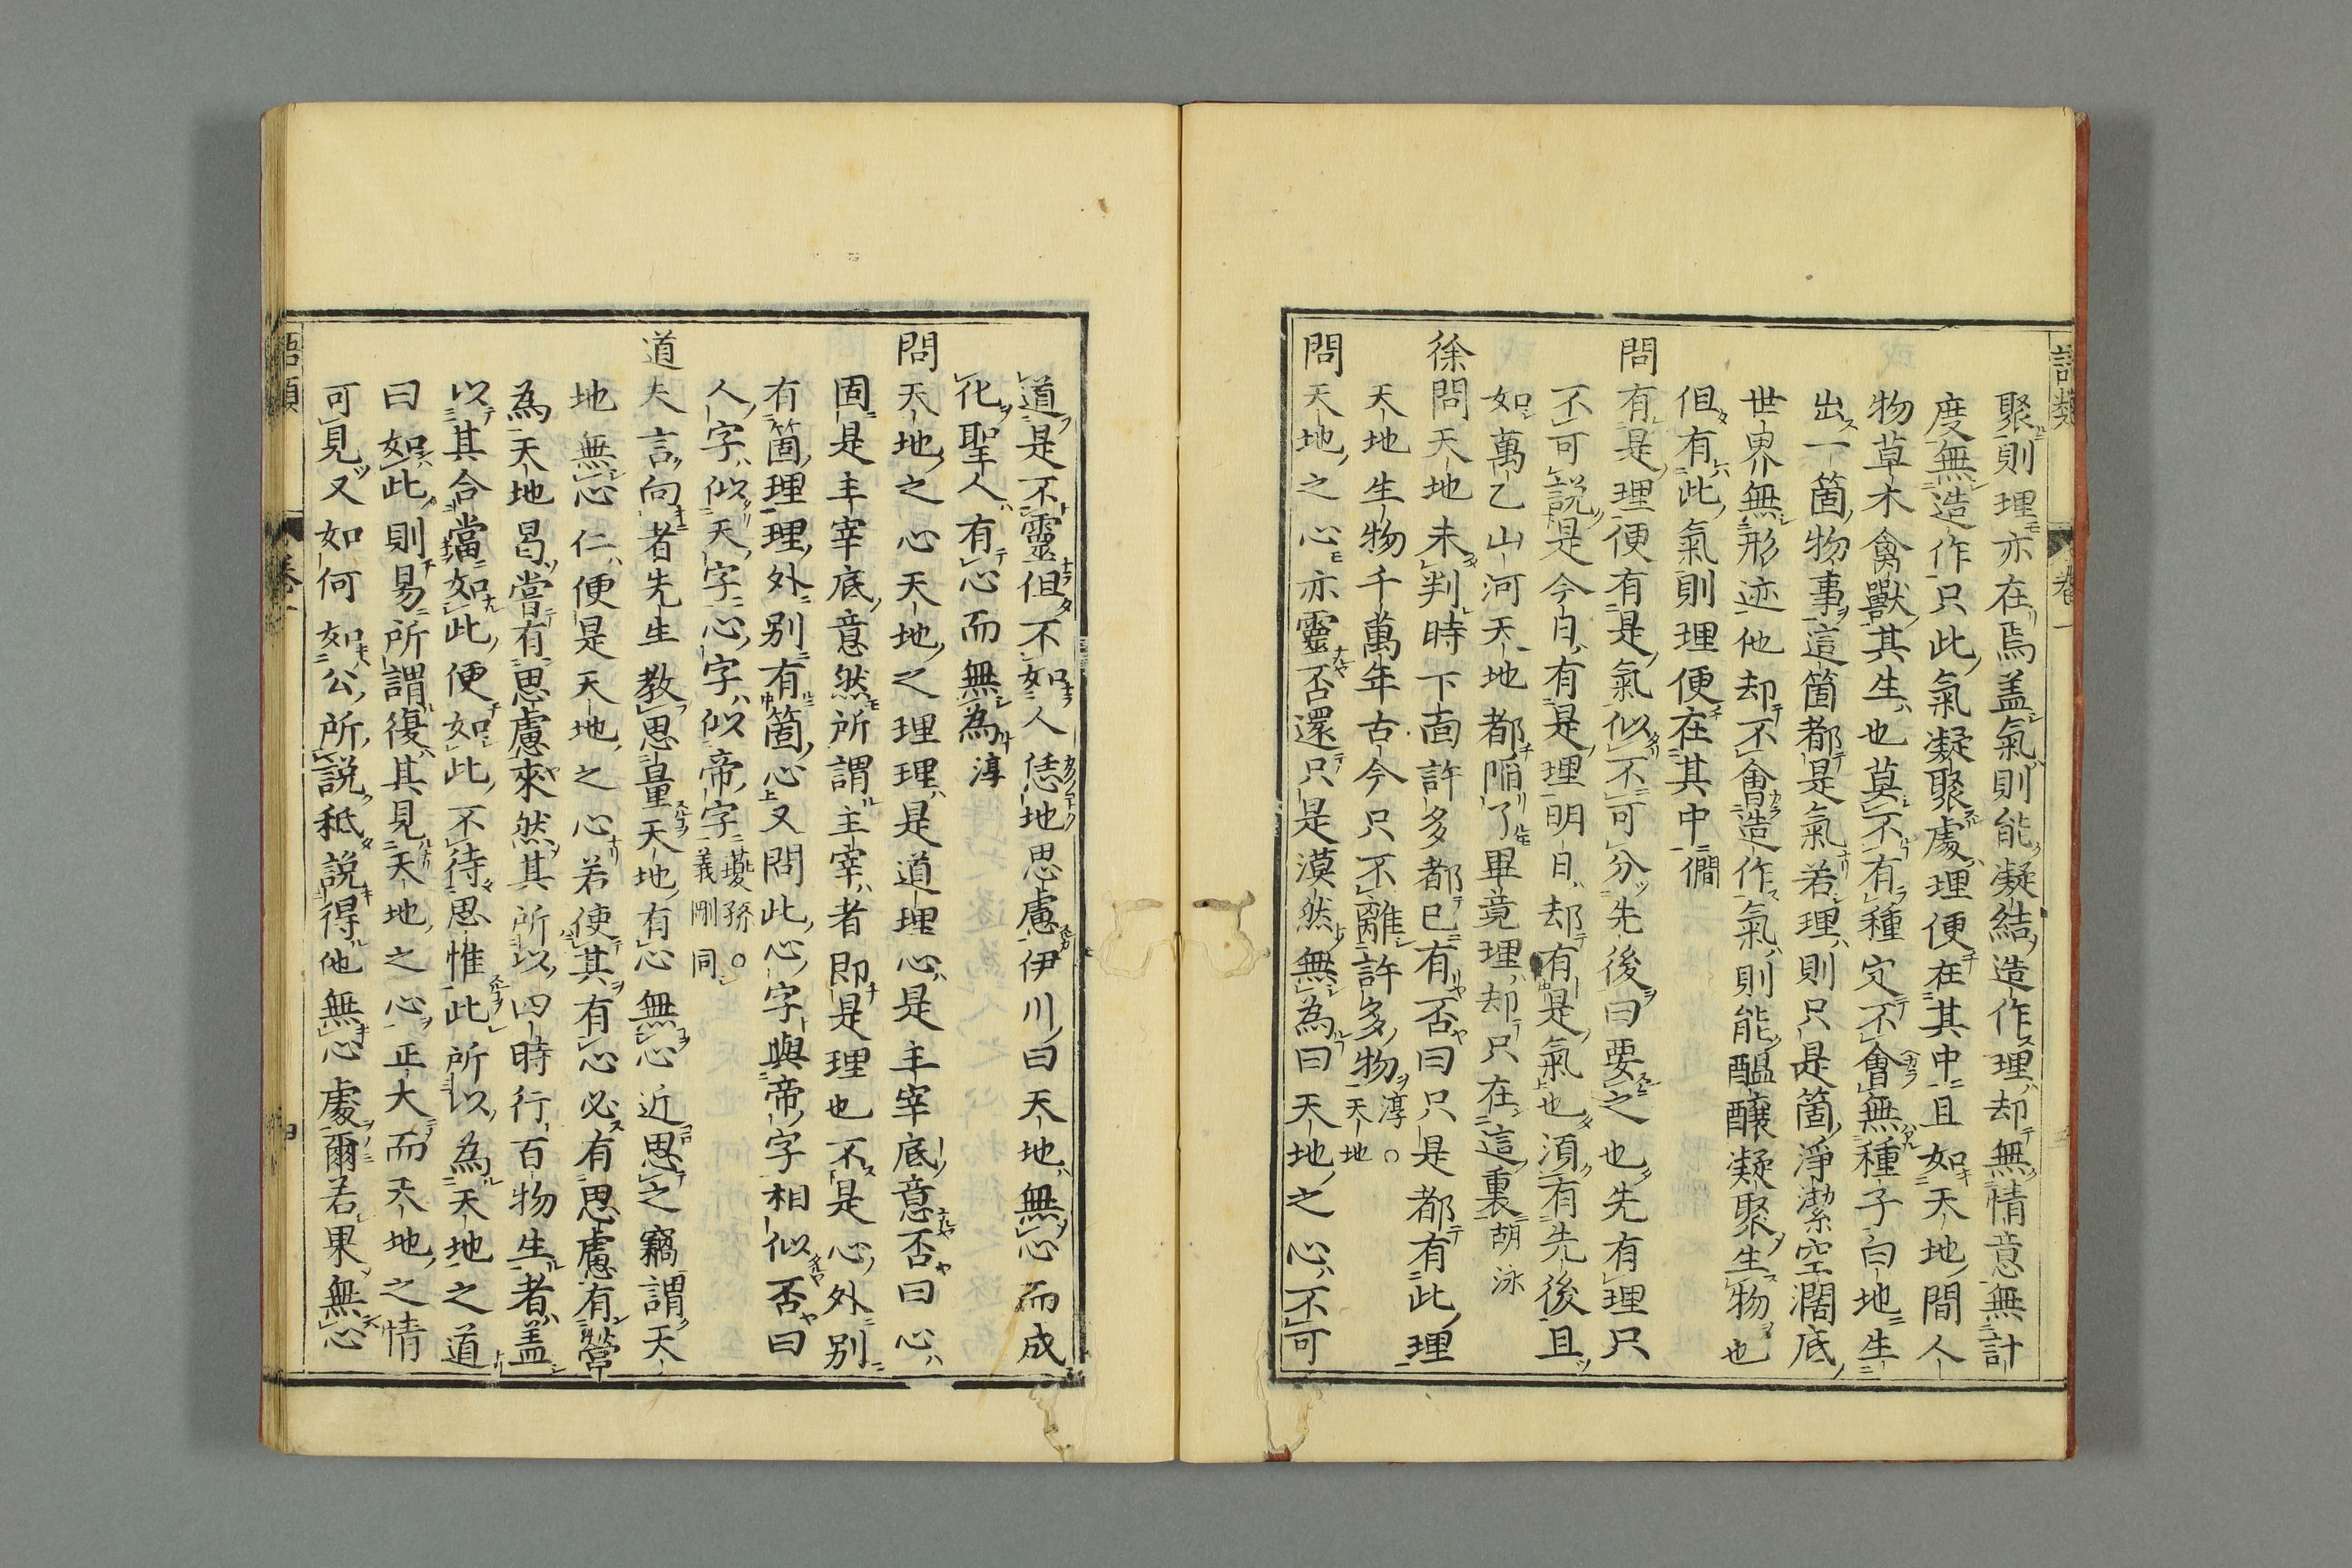 聚則理亦在焉盖氣則能凝結造作理却無情意無計
度無造作只此氣凝聚處理便在其中且如天地間人
物草木禽獸其生也莫不有種定不會無種子白地生
出一箇物事這箇都是氣若理則只是箇淨潔空濶底
世界無形迹他却不會造作氣則能醞釀凝聚生物也
但有此氣則理便在其中僩
問有是理便有是氣似不可分先後曰要之也先有理只
不可說是今日有是理明日却有是氣也須有先後且
如萬乙山河天地都陷了畢竟理却只在這裏胡泳
徐問天地未判時下面許多都已有否曰只是都有此理
天地生物千萬年古今只不離許多物淳○天地
問天地之心亦靈否還只是漠然無為曰天地之心不可
道是不靈但不如人恁地思慮伊川曰天地無心而成
化聖人有心而無為淳
問天地之心天地之理理是道理心是主宰底意否曰心
固是主宰底意然所謂主宰者即是理也不是心外別
有箇理理外別有箇心又問此心字與帝字相似否曰
人字似天字心字似帝字夔孫○義剛同
道夫言向者先生教思量天地有心無心近思之竊謂天
地無心仁便是天地之心若使其有心必有思慮有營
為天地曷嘗有思慮來然其所以四時行百物生者盖
以其合當如此便如此不待思惟此所以為天地之道
曰如此則易所謂復其見天地之心正大而天地之情
可見又如何如公所說秪說得他無心處爾若果無心
語類
卷一
語類
卷一